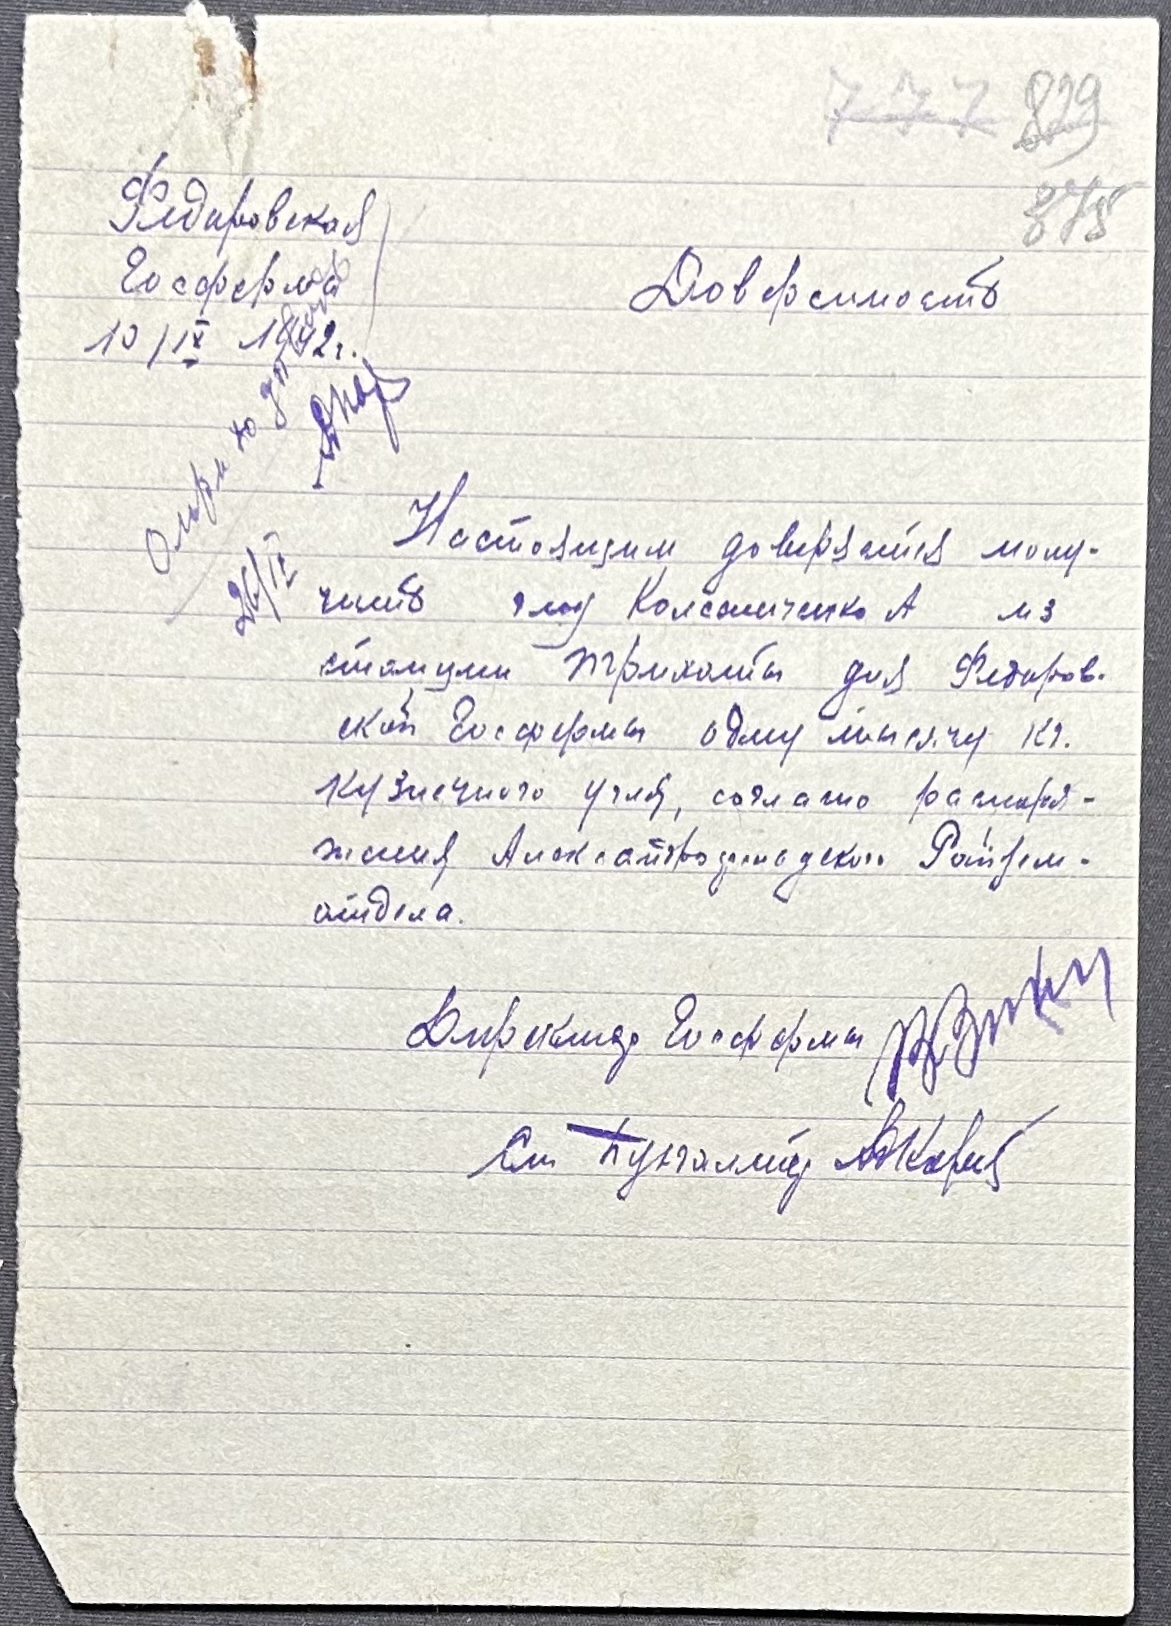 777 829
375
Федоровская
Госферма
10/IX 1942г.
Доверенность
26/IX
Настоящим доверяется полу-
чить гла Колесниченко А из
станции Трихаты для Федоров-
ской Госфермы одну тысячу кг.
кузнечного угля, согласно распоря-
жения Александродарского Райзем-
отдела.
Директор Госфермы
Ст Бухгалтер